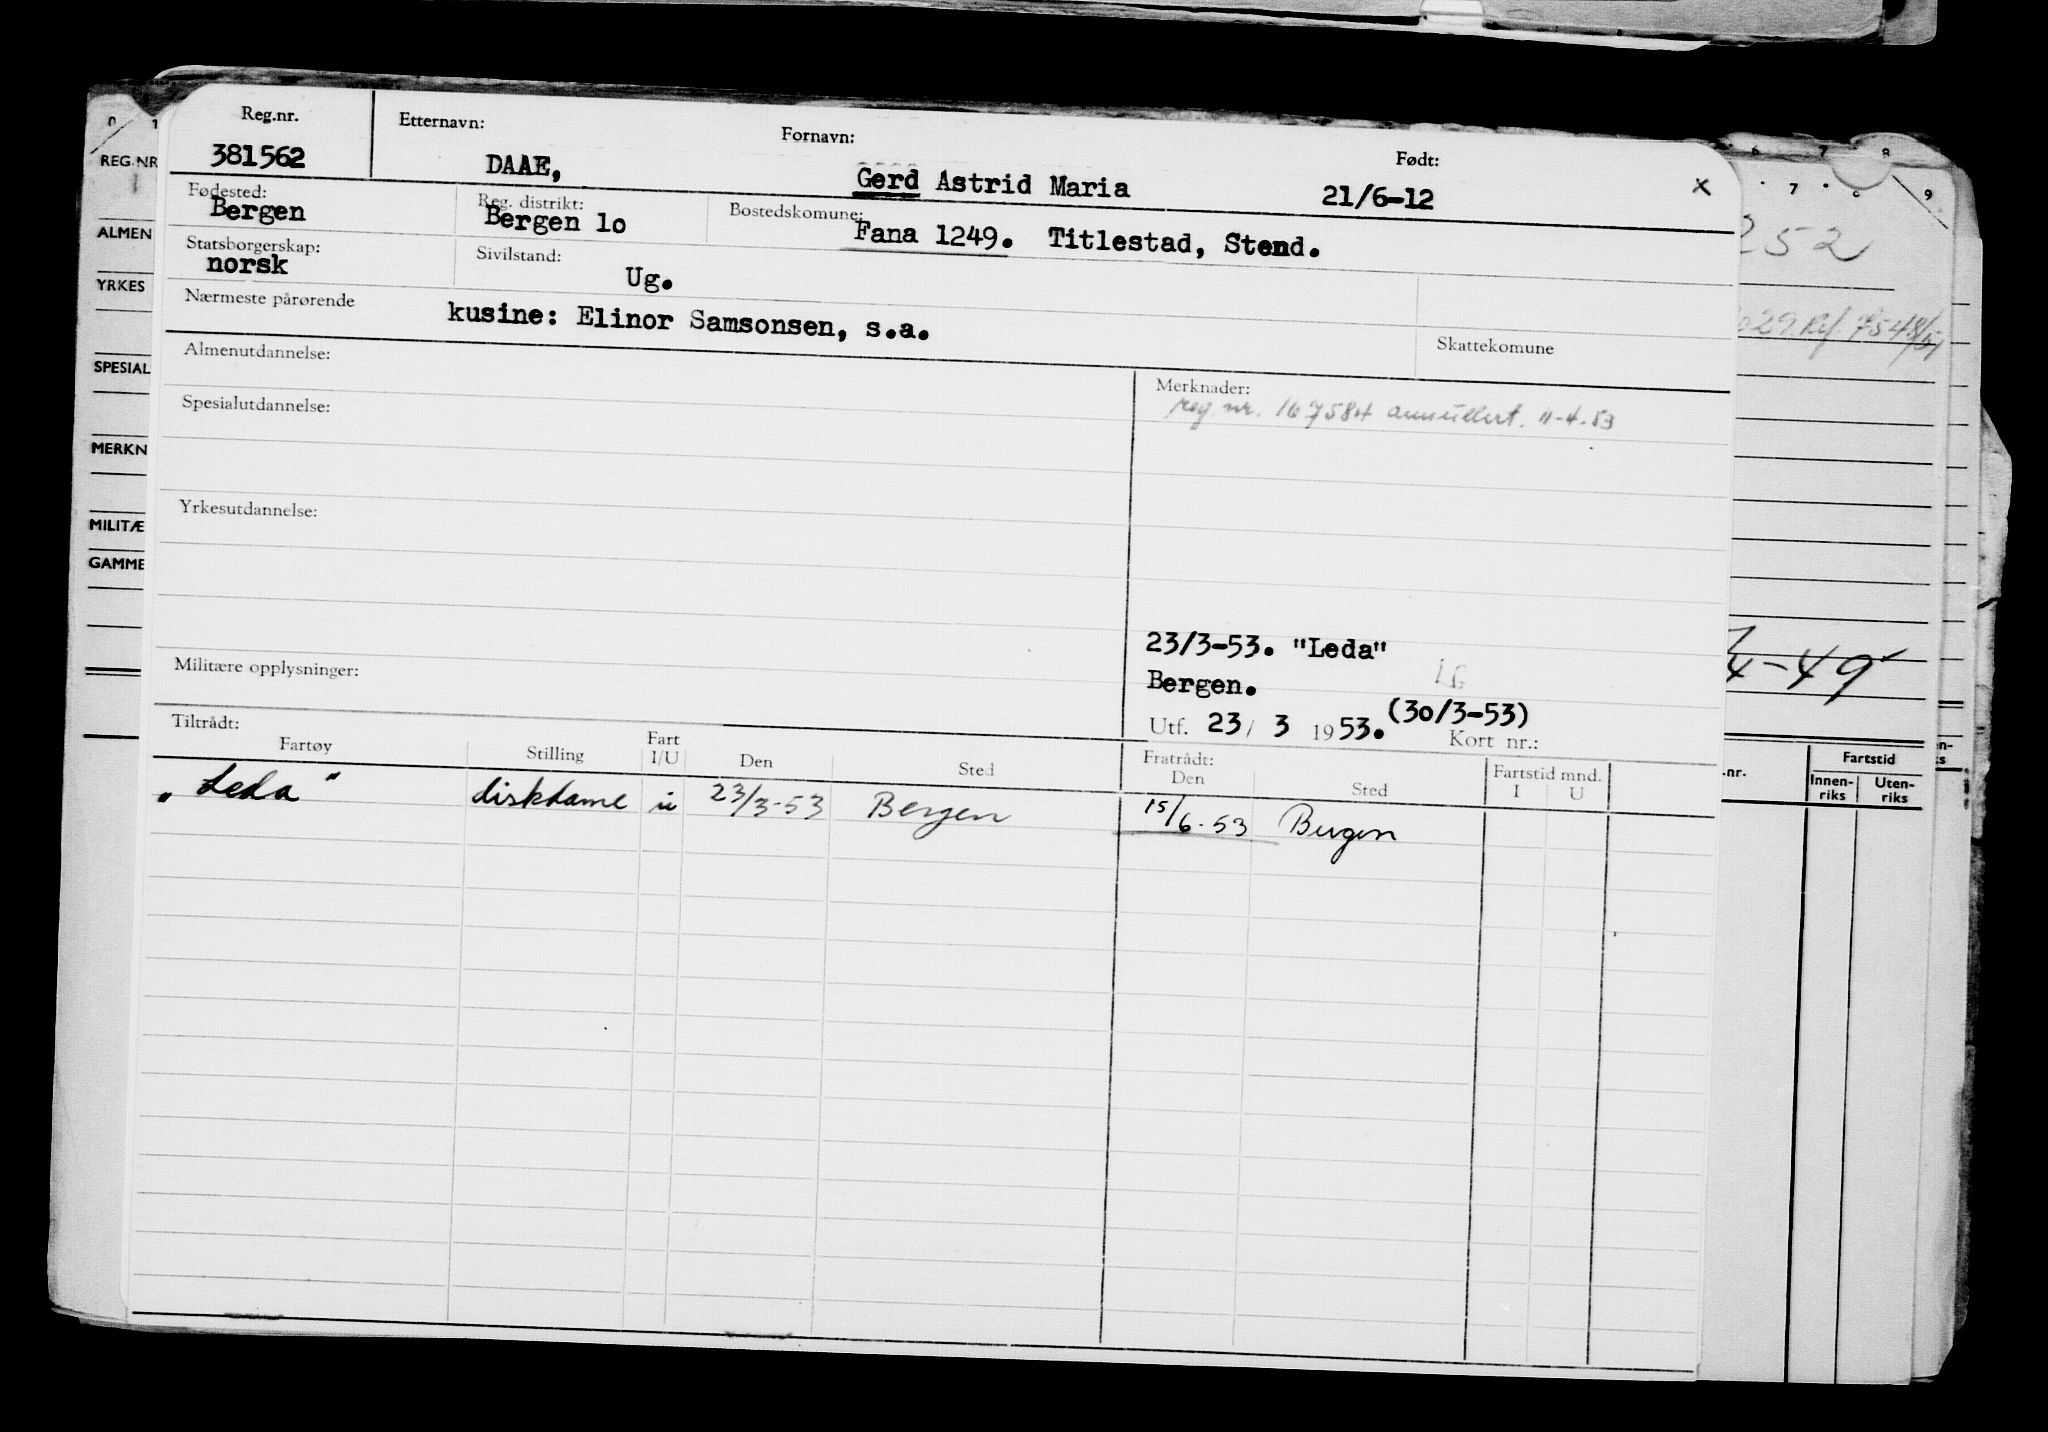 Reg.nr. Etternavn: Fornavn: Født:
381562 DAAE, Gerd Astrid Maria 21/6-12 x
Fødested: Reg. distrikt: Bostedskomune:
Bergen Bergen 1o Fana 1249. Titlestad, Stend.
Statsborgerskap: Sivilstand:
norsk Ug.
Nærmeste pårørende
kusine: Elinor Samsonsen, s.a.
Skattekomune
Almenutdannelse:
Merknader:
reg nr. annullert. 11-4-53
Spesialutdannelse:
Yrkesutdannelse:
Militære opplysninger:
23/3-53. "Leda"
Bergen. LG
(30/3-53)
Utf. 23/ 3 1953. Kort nr.:
Tiltrådt: Fratrådt:
Fartøy Stilling Fart I/U Den Sted Den Sted Fartstid mnd. I U
"Leda" diskdame u 23/3-53 Bergen 15/6-53 Bergen
0 1
REG.NR
ALMEN
YRKES
SPESIAL
MERKN
MILITÆ
GAMME
6 7 8
7 8 9
252
4-49
.nr. Fartstid
Innen-riks Uten-riks